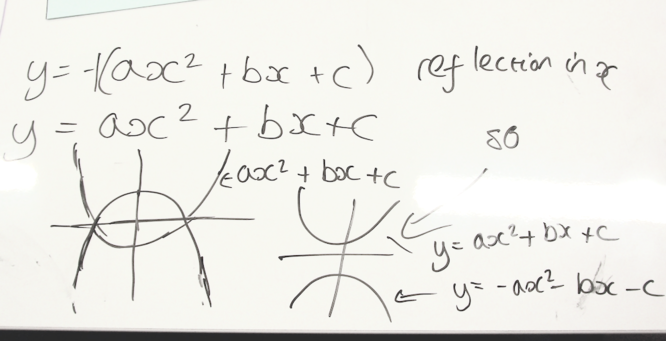 y = -1(ax² + bx + c) reflection in x
y = ax² + bx + c
so
ax² + bx + c
y = ax² + bx + c
y = -ax² - bx - c